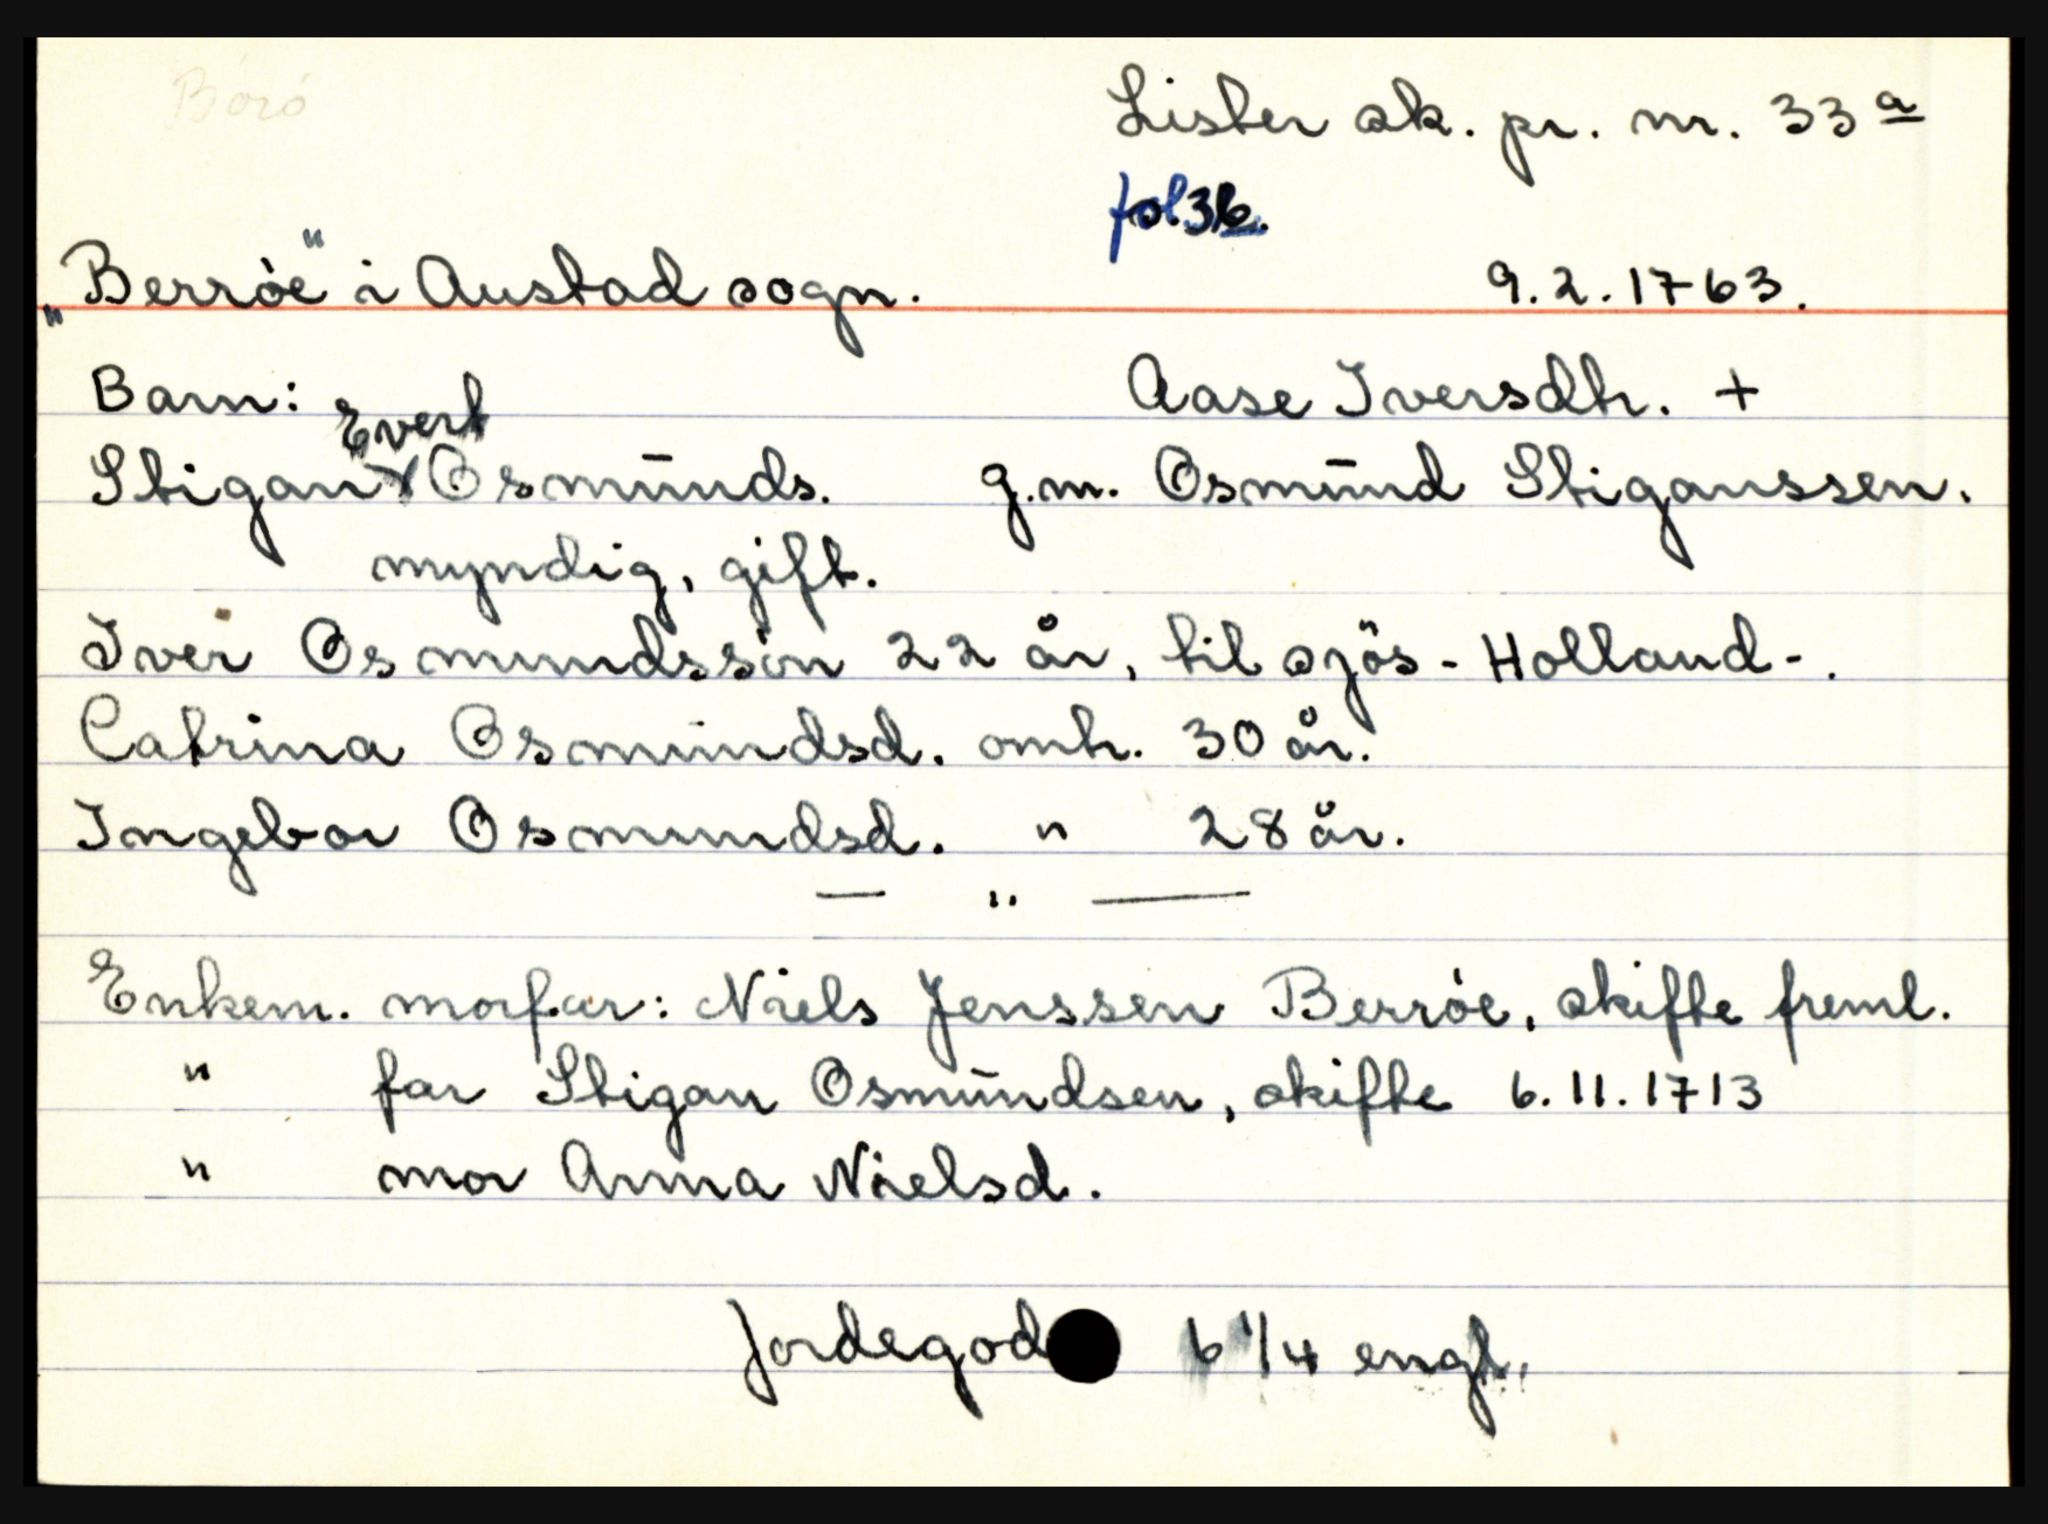 Börö
Lister sk. pr. nr. 33 a
fol. 3b.
"Berröe" i Austad sogn. 9.2.1763.
Barn: Aase Iversdtr. +
Evert
Stigan Osmunds. g.m. Osmund Stiganssen.
myndig, gift.
Iver Osmundssön 22 år, til sjös - Holland -.
Catrina Osmundsd. omtr. 30 år.
Ingebor Osmundsd. " 28 år.
— " —
Enkem. morfar: Niels Jenssen Berröe, skifte freml.
" far Stigan Osmundsen, skifte 6.11.1713
" mor Anna Nielsd.
Jordegod 6 1/4 engl.